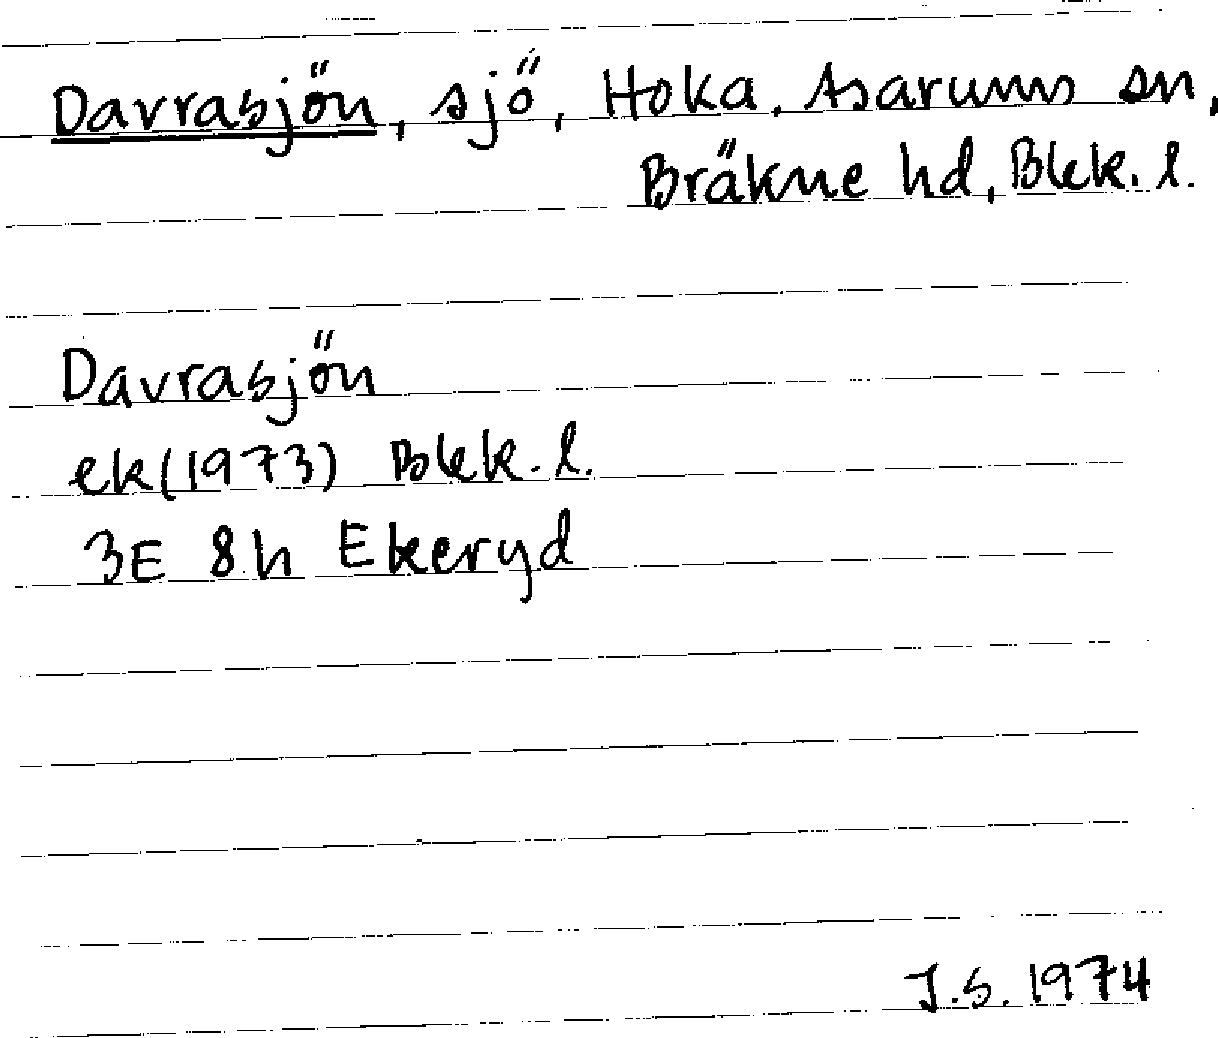 Davrasjön, sjö, Hoka, Asarums sn,
Bräkne hd, Blek. l.
Davrasjön
ek (1973) Blek. l.
3E 8h Ekeryd
J.S. 1974